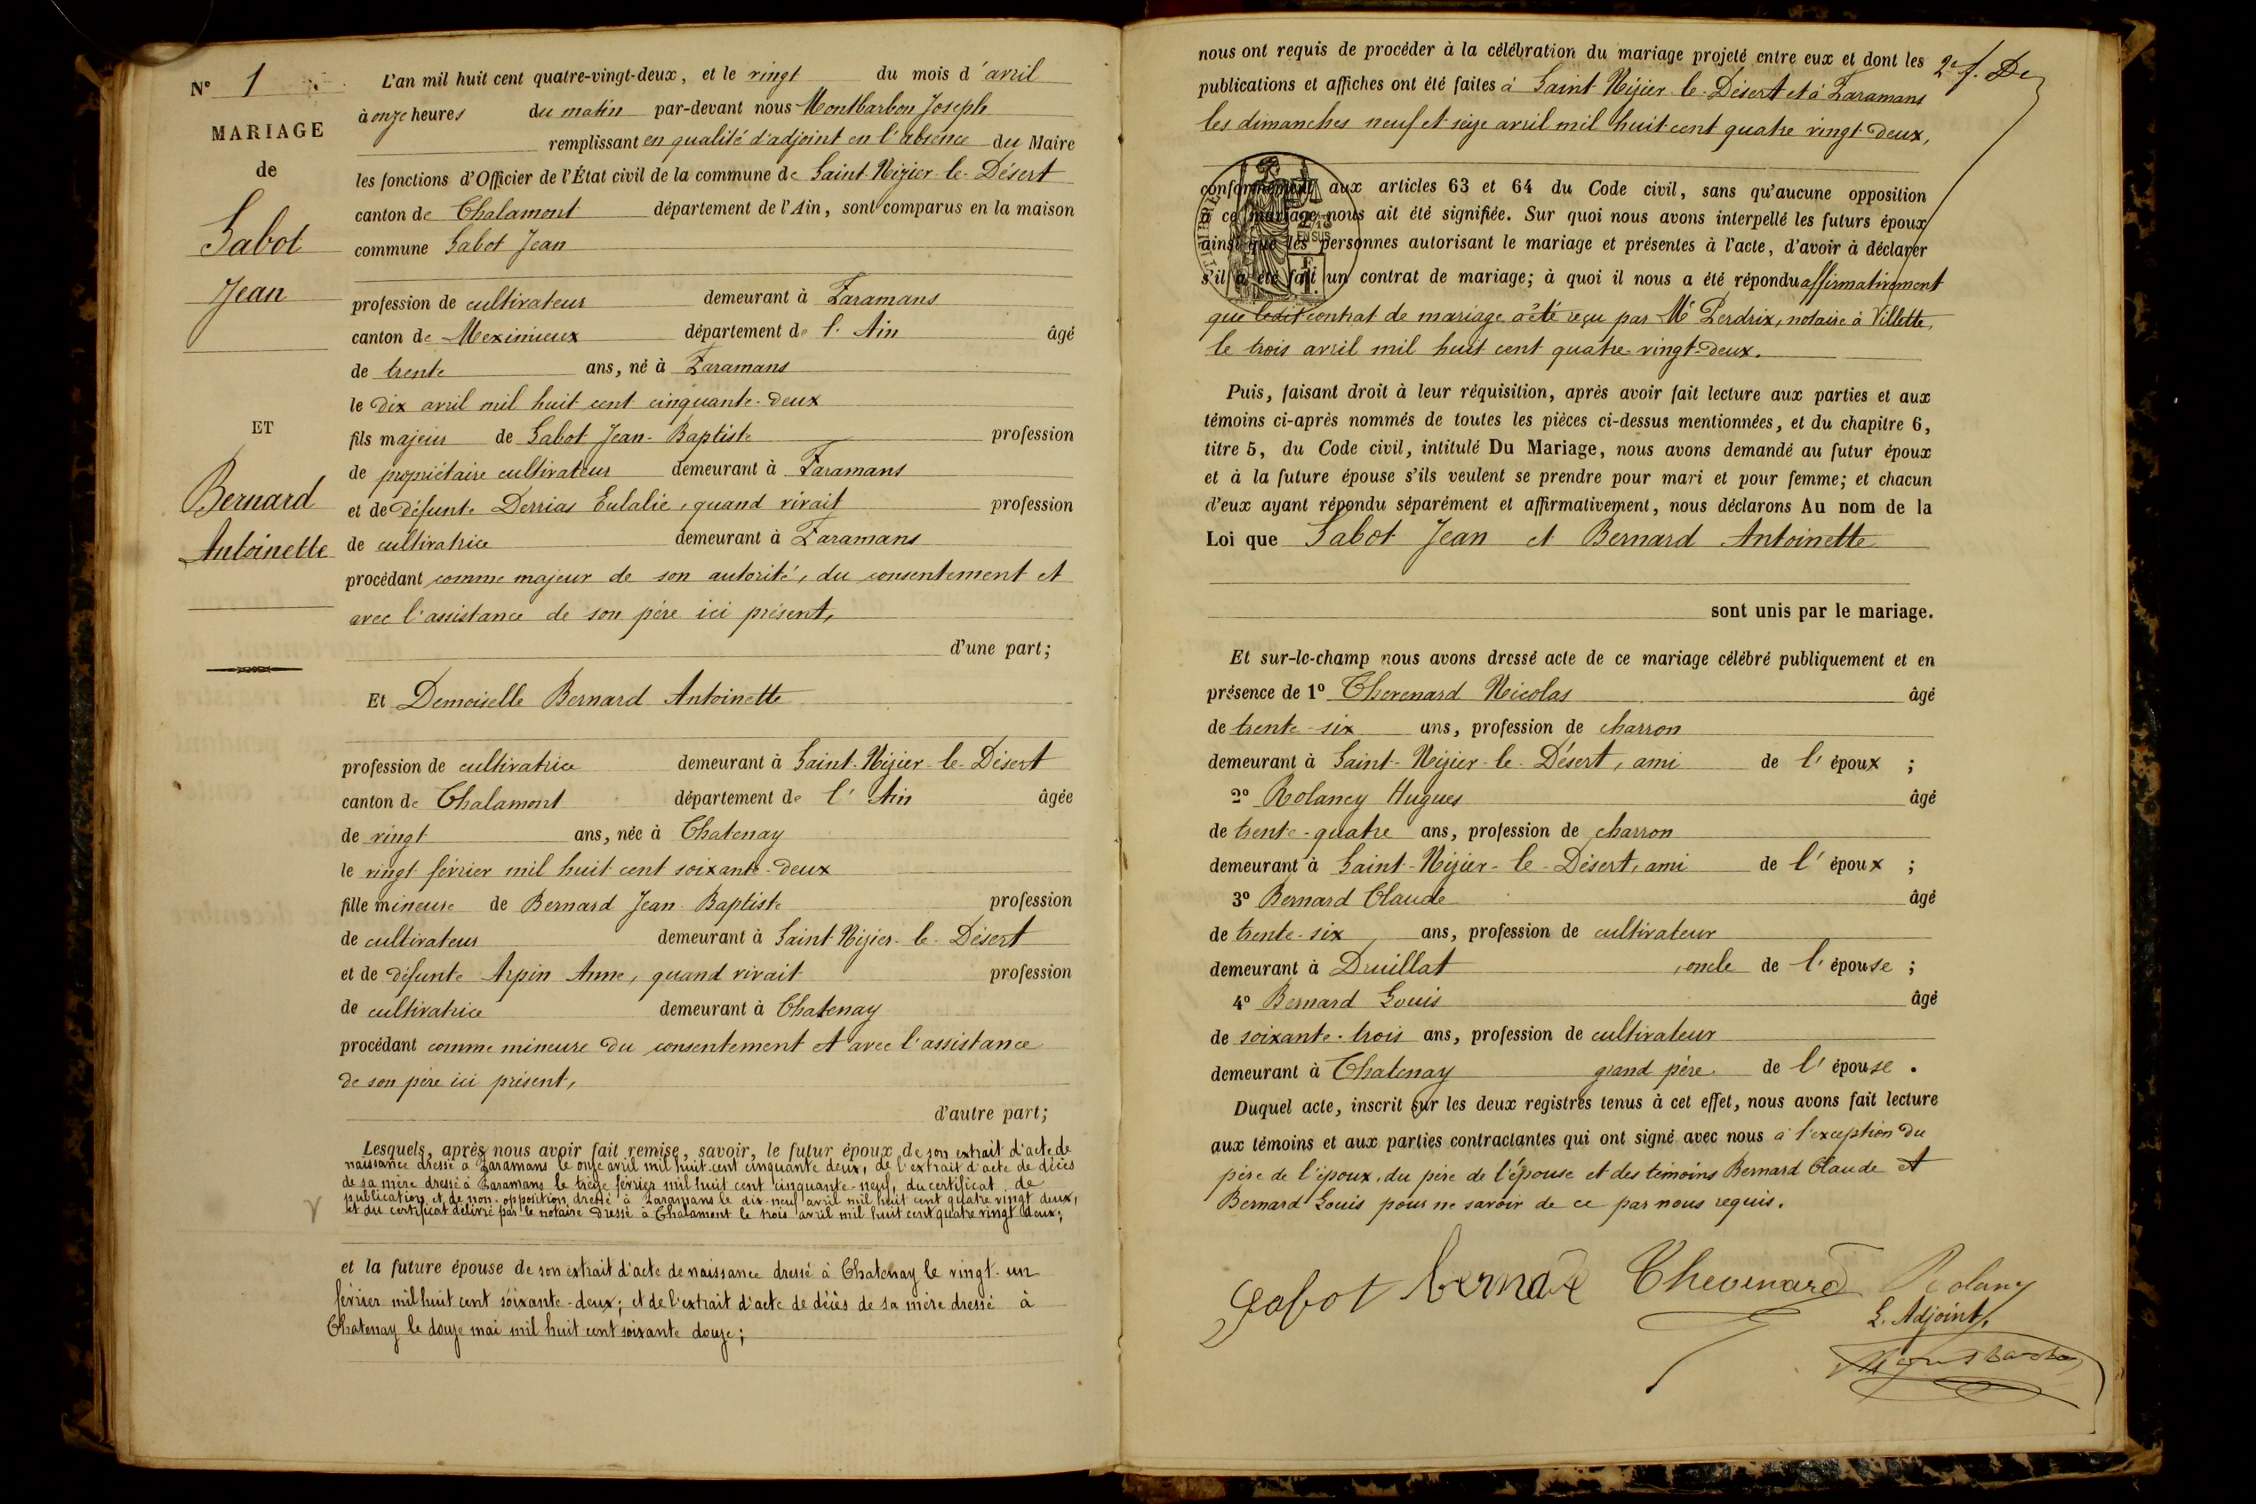 Nº 1
MARIAGE
de
Sabot
Jean
ET
Bernard
Antoinette
L'an mil huit cent quatre-vingt-deux, et le vingt du mois d'avril
à onze heures du matin par-devant nous Montbarbon Joseph
remplissant en qualité d'adjoint en l'absence du Maire
les fonctions d'Officier de l'État civil de la commune de Saint-Nizier-le-Désert
canton de Chalamont département de l'Ain, sont comparus en la maison
commune Sabot Jean
profession de cultivateur demeurant à Faramans
canton de Meximieux département de l'Ain âgé
de trente ans, né à Faramans
le dix avril mil huit cent cinquante-deux
fils majeur de Sabot Jean-Baptiste profession
de propriétaire cultivateur demeurant à Faramans
et de défunte Derrias Eulalie, quand vivait profession
de cultivatrice demeurant à Faramans
procédant comme majeur de son autorité, du consentement et
avec l'assistance de son père ici présent,
d'une part;
Et Demoiselle Bernard Antoinette
profession de cultivatrice demeurant à Saint-Nizier-le-Désert
canton de Chalamont département de l'Ain âgée
de vingt ans, née à Chatenay
le vingt février mil huit cent soixante-deux
fille mineure de Bernard Jean-Baptiste profession
de cultivateur demeurant à Saint-Nizier-le-Désert
et de défunte Arpin Anne, quand vivait profession
de cultivatrice demeurant à Chatenay
procédant comme mineure du consentement et avec l'assistance
de son père ici présent,
d'autre part;
Lesquels, après nous avoir fait remise, savoir, le futur époux de son extrait d'acte de
naissance dressé à Faramans le onze avril mil huit cent cinquante deux, de l'extrait d'acte de décès
de sa mère dressé à Faramans le treize février mil huit cent cinquante-neuf, du certificat de
publication et de non-opposition dressé à Faramans le dix-neuf avril mil huit cent quatre vingt deux,
et du certificat délivré par le notaire dressé à Chalamont le trois avril mil huit cent quatre vingt deux;
et la future épouse de son extrait d'acte de naissance dressé à Chatenay le vingt-un
février mil huit cent soixante-deux; et de l'extrait d'acte de décès de sa mère dressé à
Chatenay le douze mai mil huit cent soixante douze;
nous ont requis de procéder à la célébration du mariage projeté entre eux et dont les
publications et affiches ont été faites à Saint-Nizier-le-Désert et à Faramans
les dimanches neuf et seize avril mil huit cent quatre vingt-deux,
conformément aux articles 63 et 64 du Code civil, sans qu'aucune opposition
à ce mariage nous ait été signifiée. Sur quoi nous avons interpellé les futurs époux
ainsi que les personnes autorisant le mariage et présentes à l'acte, d'avoir à déclarer
s'il a été fait un contrat de mariage; à quoi il nous a été répondu affirmativement
que ledit contrat de mariage a été reçu par Me Perdrix, notaire à Villette,
le trois avril mil huit cent quatre-vingt-deux.
Puis, faisant droit à leur réquisition, après avoir fait lecture aux parties et aux
témoins ci-après nommés de toutes les pièces ci-dessus mentionnées, et du chapitre 6,
titre 5, du Code civil, intitulé Du Mariage, nous avons demandé au futur époux
et à la future épouse s'ils veulent se prendre pour mari et pour femme; et chacun
d'eux ayant répondu séparément et affirmativement, nous déclarons Au nom de la
Loi que Sabot Jean et Bernard Antoinette
sont unis par le mariage.
Et sur-le-champ nous avons dressé acte de ce mariage célébré publiquement et en
présence de 1º Thevenard Nicolas âgé
de trente-six ans, profession de charron
demeurant à Saint-Nizier-le-Désert, ami de l'époux ;
2º Rolancy Hugues âgé
de trente-quatre ans, profession de charron
demeurant à Saint-Nizier-le-Désert, ami de l'époux ;
3º Bernard Claude âgé
de trente-six ans, profession de cultivateur
demeurant à Druillat, oncle de l'épouse ;
4º Bernard Louis âgé
de soixante-trois ans, profession de cultivateur
demeurant à Chatenay grand père de l'épouse .
Duquel acte, inscrit sur les deux registres tenus à cet effet, nous avons fait lecture
aux témoins et aux parties contractantes qui ont signé avec nous à l'exception du
père de l'époux, du père de l'épouse et des témoins Bernard Claude et
Bernard Louis pour ne savoir de ce par nous requis.
Sabot Bernard Thevenard Rolancy
L. Adjoint,